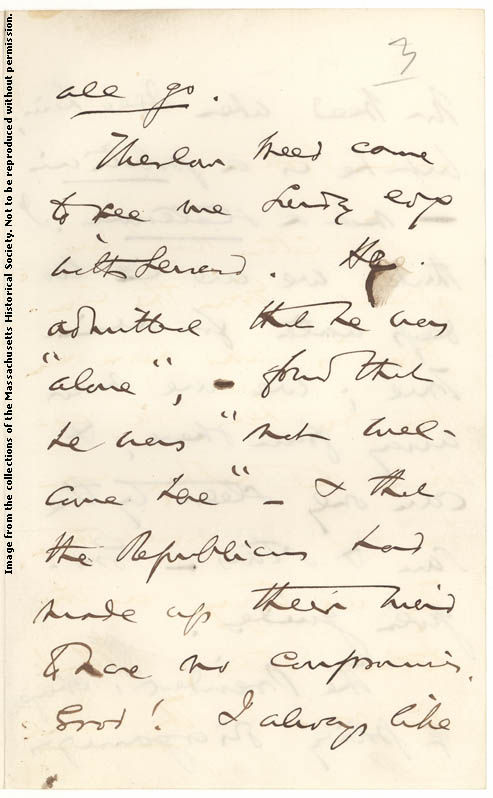 3
all go.
Thurlow Weed came
to see me Sundy evg
with Seward. He
admitted that he was
"alone", – found that
he was "not wel-
come here" – & that
the Republicans had
made up their mind
to have no compromise.
Good! I always like
Image from the collections of the Massachusetts Historical Society. Not to be reproduced without permission.